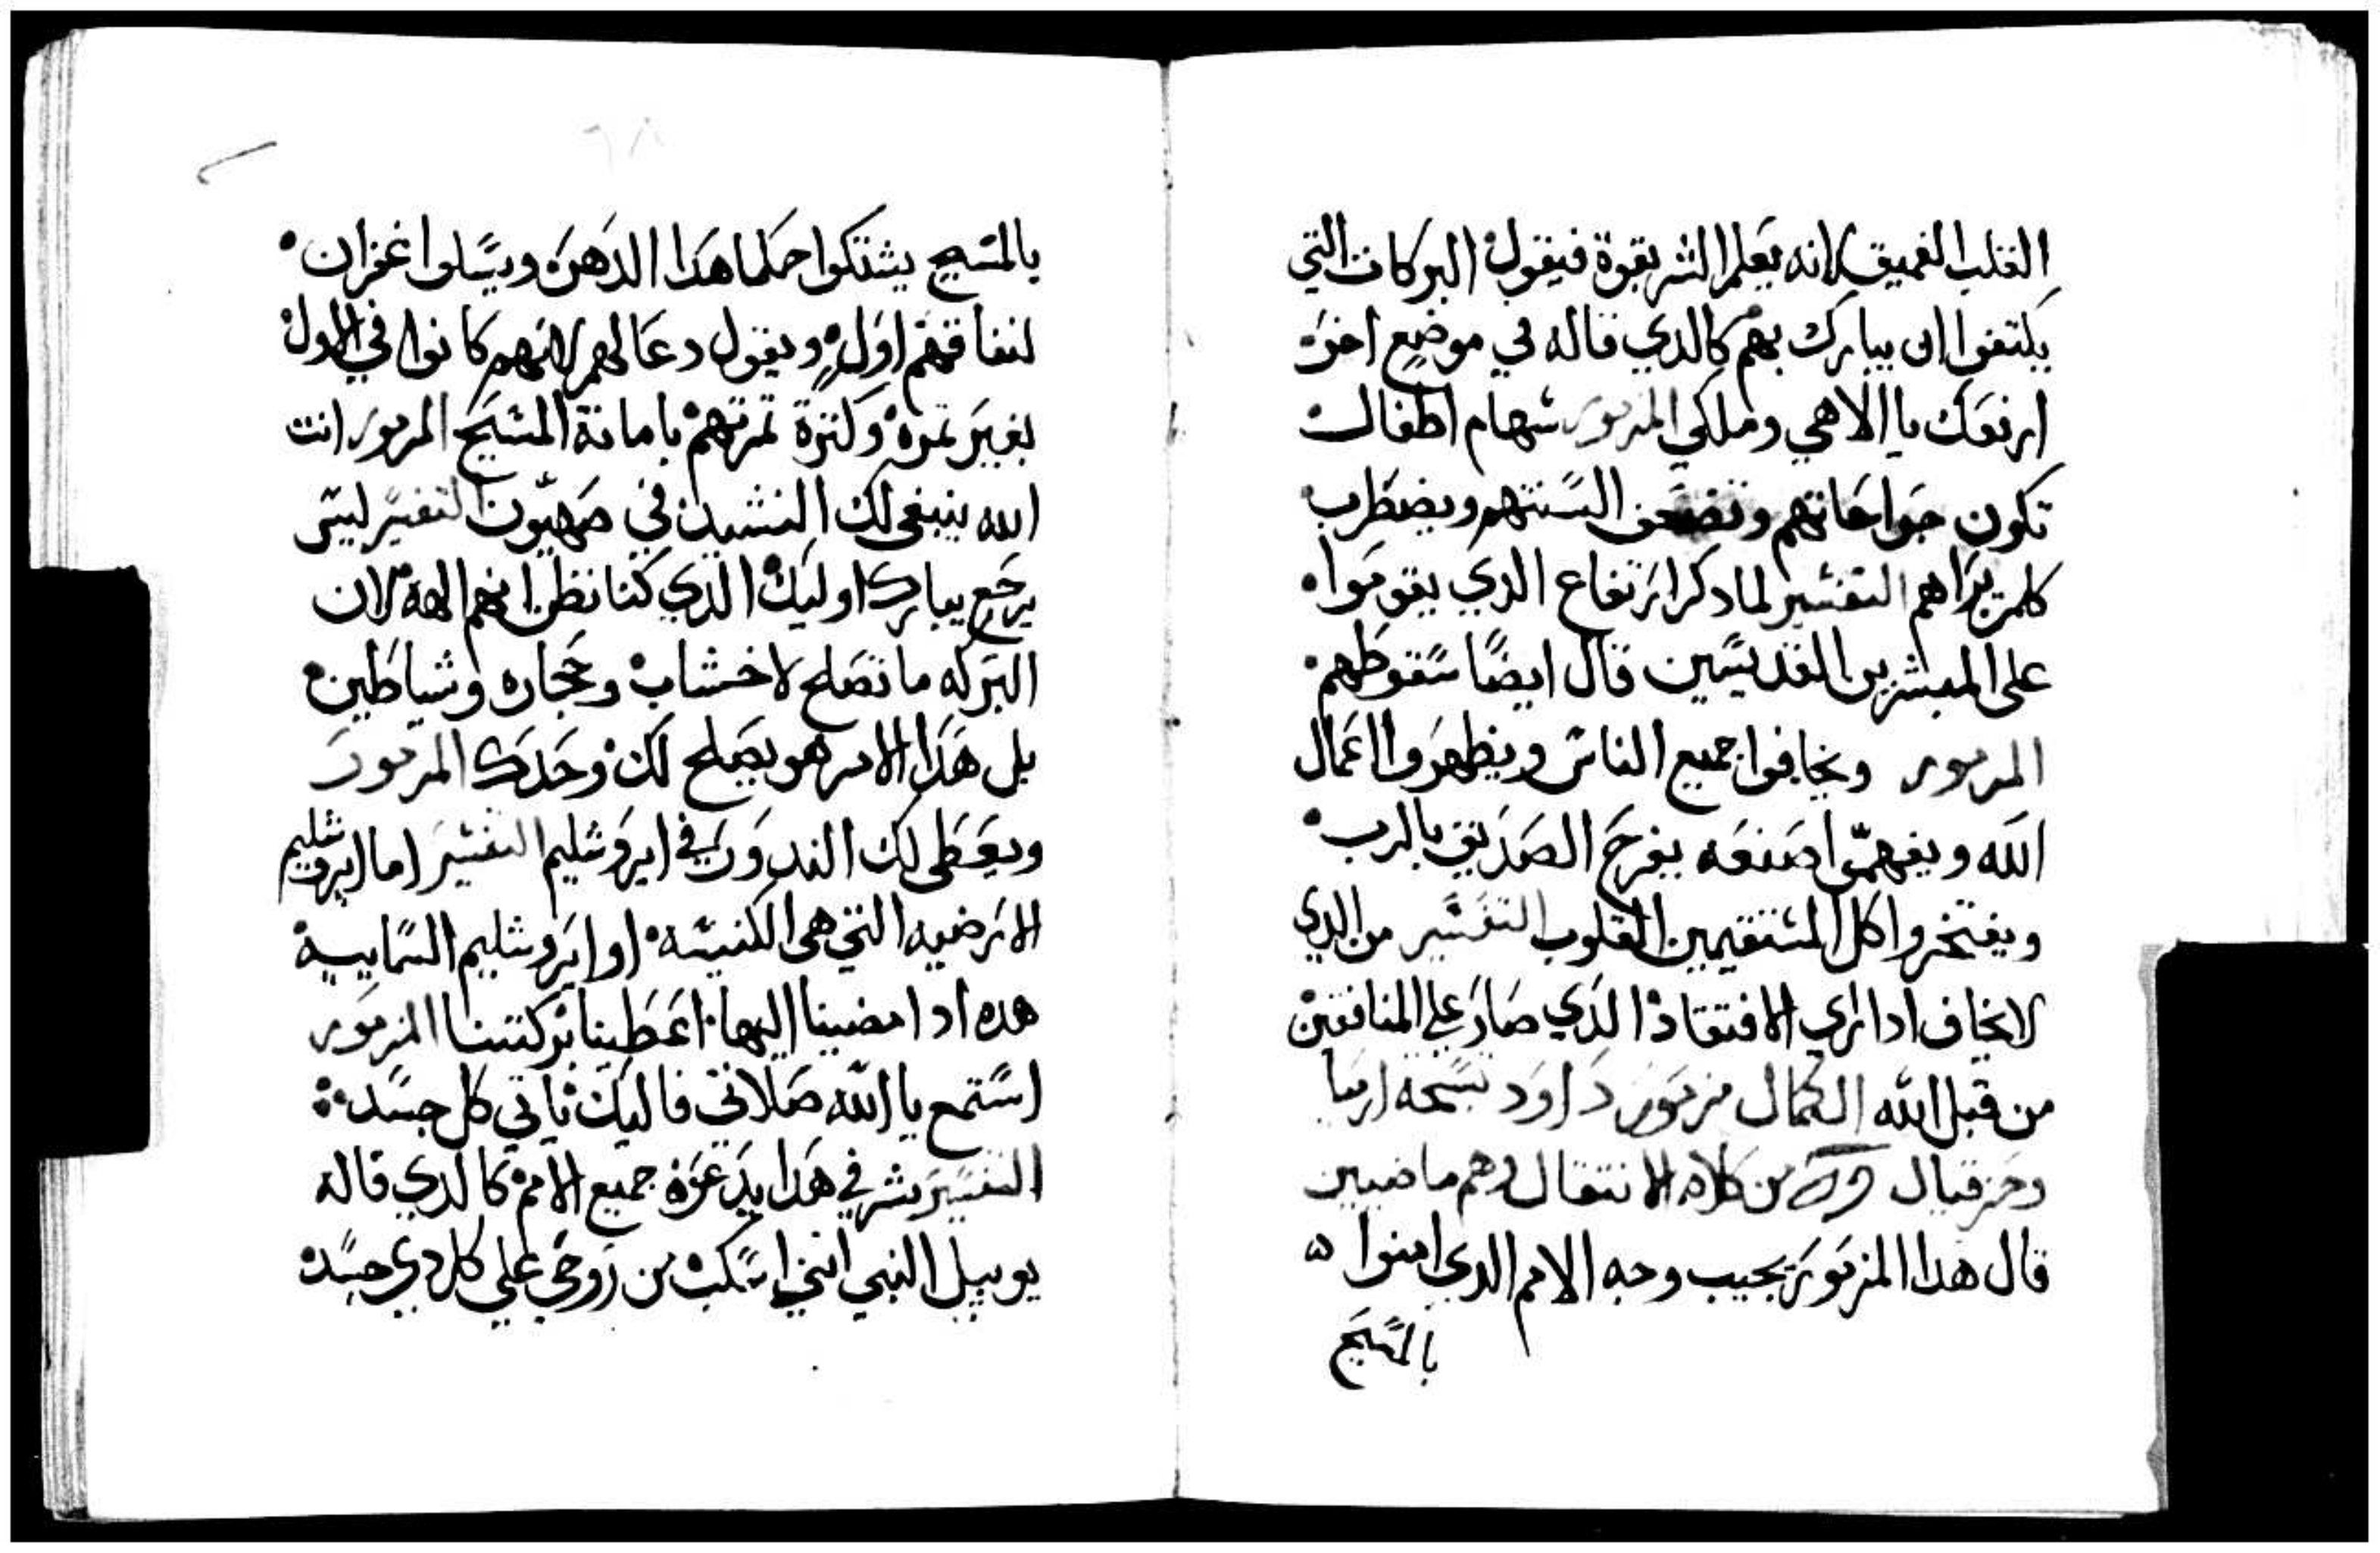 القلب الغميق لانه يعلم الشر بقوة فيقول البركات التي
يلتفتوا ان يبارك بهم كالدي قاله في موضع اخر
ارفعك يا الاهي وملكي المزمور سهام اطفال
تكون جراحاتهم وتضعف السنتهم ويضطرب
كلمن يراهم التفسير لما دكر ارتفاع الدي يقوموا
على المبشرين القديسين قال ايضا سقوطهم
المزمور ويخافوا جميع الناس ويظهروا اعمال
الله ويفهموا صنعه يفرح الصديق بالرب
ويفتخروا كل المستقيمين القلوب التفسير من الدي
لا يخاف ادا راي الافتقاد الدي صار علي المنافقين
من قبل الله الكمال مزمور داود نسخه ارميا
وحزقيال من كلام الانتقال وهم ماضيين
قال هدا المزمور يجيب وجه الامم الدي امنوا
بالمسيح
بالمسيح يشتكوا حكما هدا الدهر ويسلوا غفران
لنفاقهم اول ويقول دعا لهم لانهم كانوا في الاول
بغير تمره وكترة تمرتهم بامانة المسيح المزمور انت
الله ينبغي لك النشيد في صهيون التفسير ليس
يرجع يبارك اوليك الدي كنا نظن انهم الهه لان
البركه ما تصلح لاخشاب وحجاره وشياطين
بل هدا الامر هو يصلح لك وحدك المزمور
ويعطى لك الندور في ايروشليم التفسير اما ايروشليم
الارضيه التي هى الكنيسه او ايروشليم السماييه
هده ادا مضينا اليها اعطينا بركتنا المزمور
استمع يا الله صلاتي فاليك ياتي كل جسد
التفسير بشر في هدا بدعوة جميع الامم كالدي قاله
يوييل النبي انني اسكب من روحي علي كل دي جسد